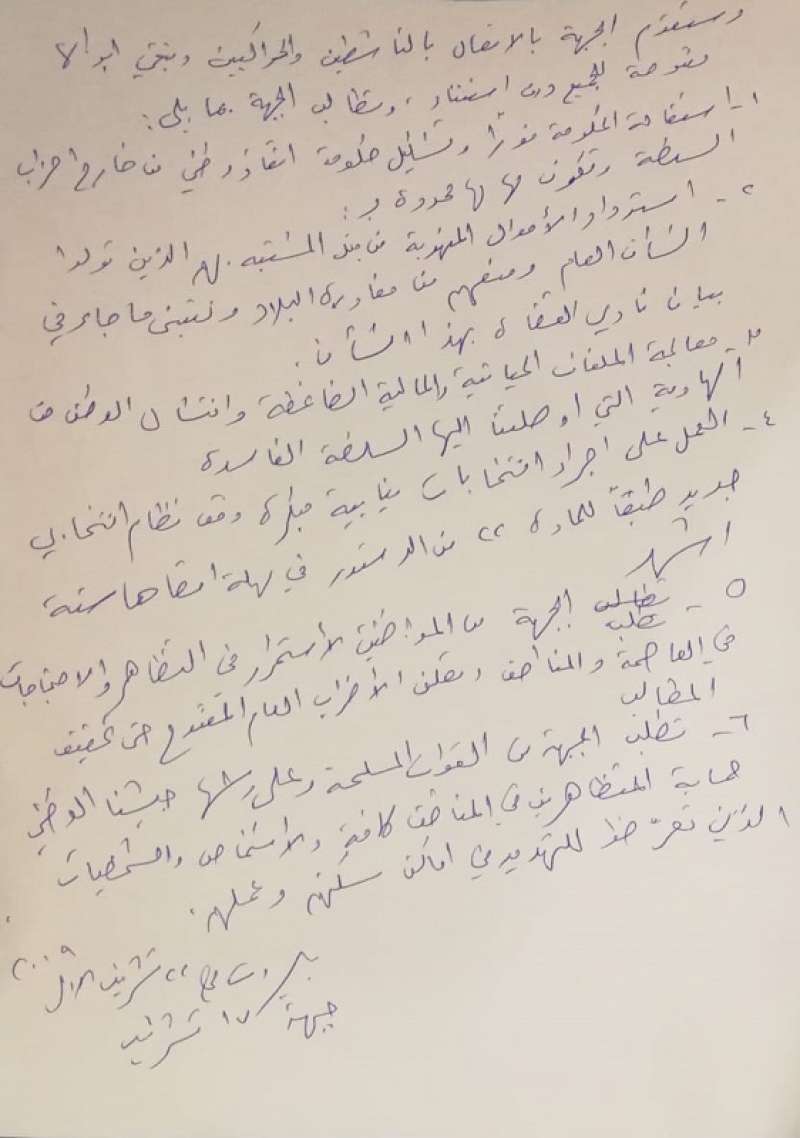 وستقوم الجهة بالاتصال بالناشطين والحراكيين وتبقي ابوابها
مفتوحة للجميع دون استثناء، وتطالب الجبهة بما يلي:
١- استقالة الحكومة فورًا وتشكيل حكومة انقاذ وطني من خارج احزاب
السلطة وتكون مهامها محدودة بـ:
٢- استرداد الأموال المنهوبة من قبل المشتبه بهم الذين تولوا
الشأن العام ومنعهم من مغادرة البلاد ونتبنى ما جاء في
بيان نادي القضاة بهذا الشأن.
٣- معالجة الملفات الحياتية والمالية الضاغطة وانتشال الوطن من
الهاوية التي اوصلتنا اليها السلطة الفاسدة
٤- العمل على اجراء انتخابات نيابية مبكرة وفق نظام انتخابي
جديد طبقاً للمادة ٢٢ من الدستور في مهلة اقصاها ستة
اشهر
٥- تطلب الجبهة من المواطنين الاستمرار في التظاهر والاحتجاجات
في العاصمة والمناطق وتعلن الأضراب العام المفتوح حتى تحقيق
المطالب
٦- تطلب الجبهة من القوات المسلحة وعلى رأسها جيشنا الوطني
حماية المتظاهرين في المناطق كافة والاشخاص والشخصيات
الذين تعرّضوا للتهديد في اماكن سكنهم وعملهم.
بيروت في ٢٢ تشرين الاول ٢٠٠٩
جبهة ١٧ تشرين